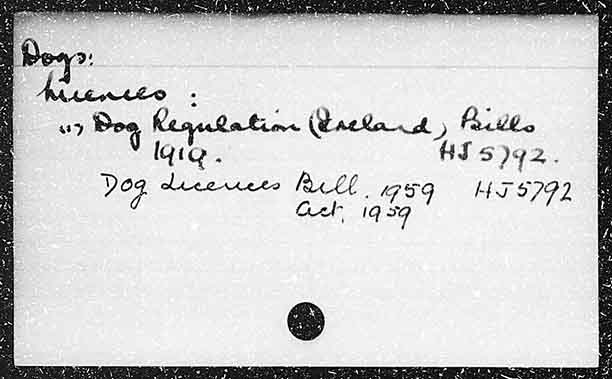 Dogs:
Licences :
Dog Regulation (Ireland) Bills
1919. HJ 5792.
Dog Licences Bill. 1959 HJ5792
Act, 1959